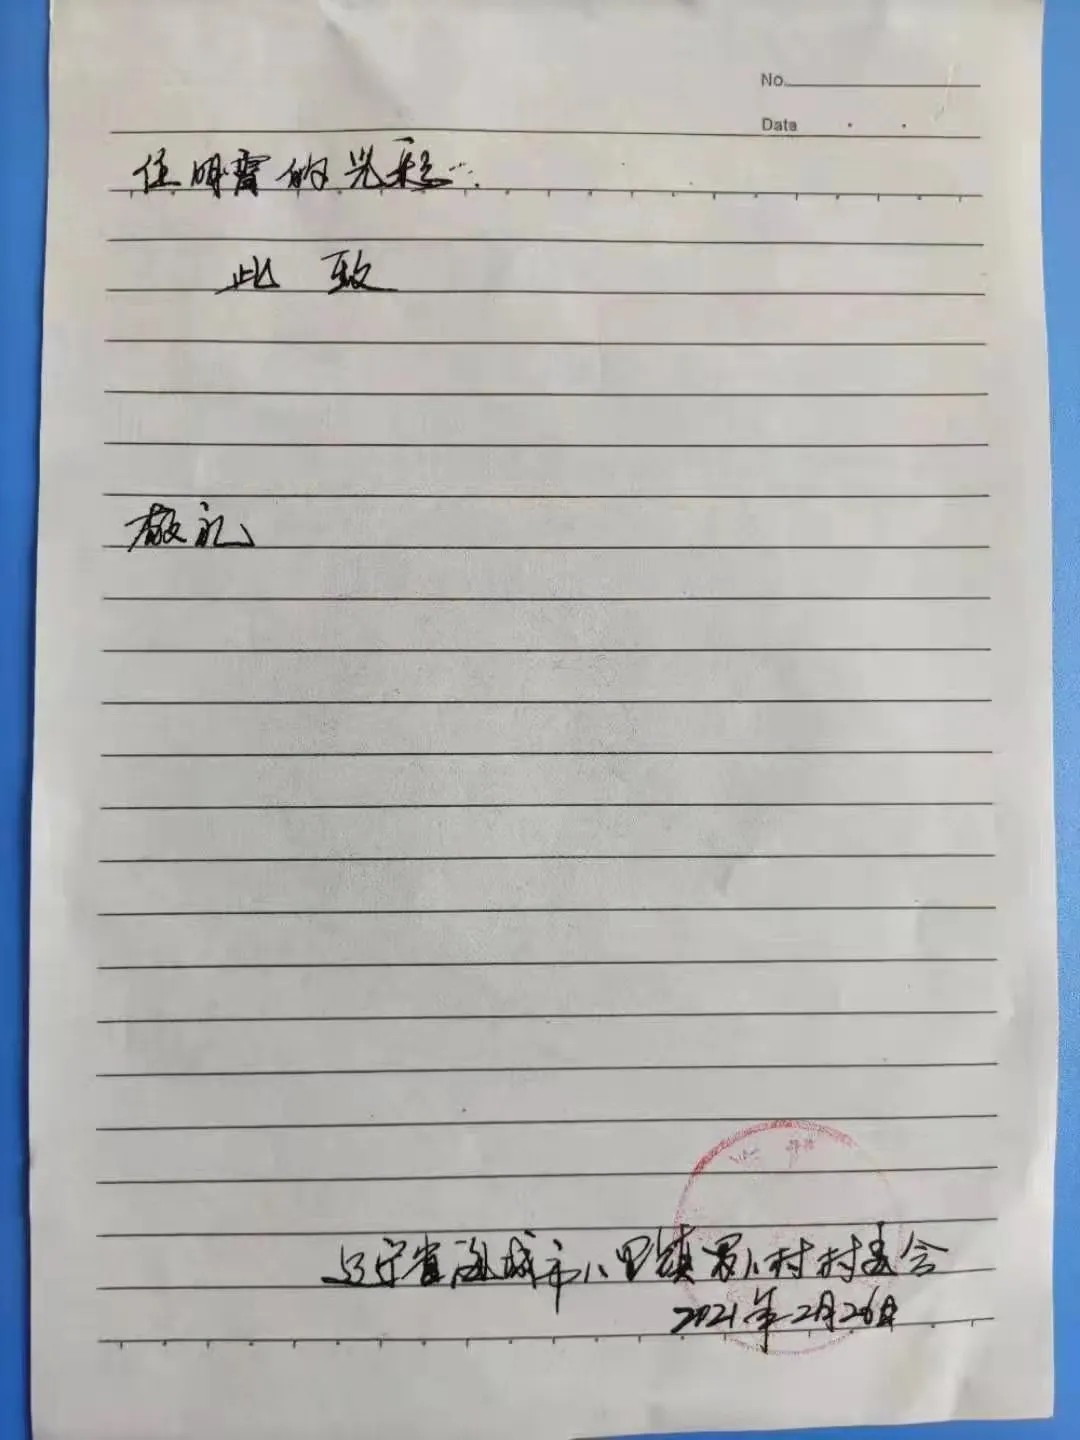 No.
Date
住明宵的光彩
此致
敬礼
辽宁省海城市八里镇 村村委会
2021年2月26日